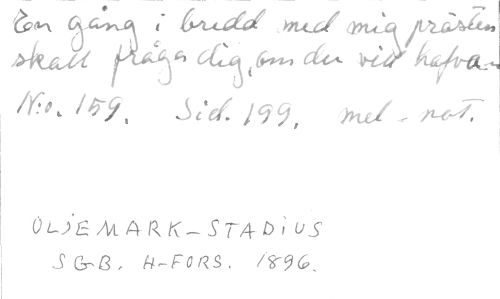 En gång i bredd med mig prästen
skall fråga dig, om du vill hafva
N:o. 159. Sid. 199. mel-not.
OLJEMARK-STADIUS
SGB. H-FORS. 1896.